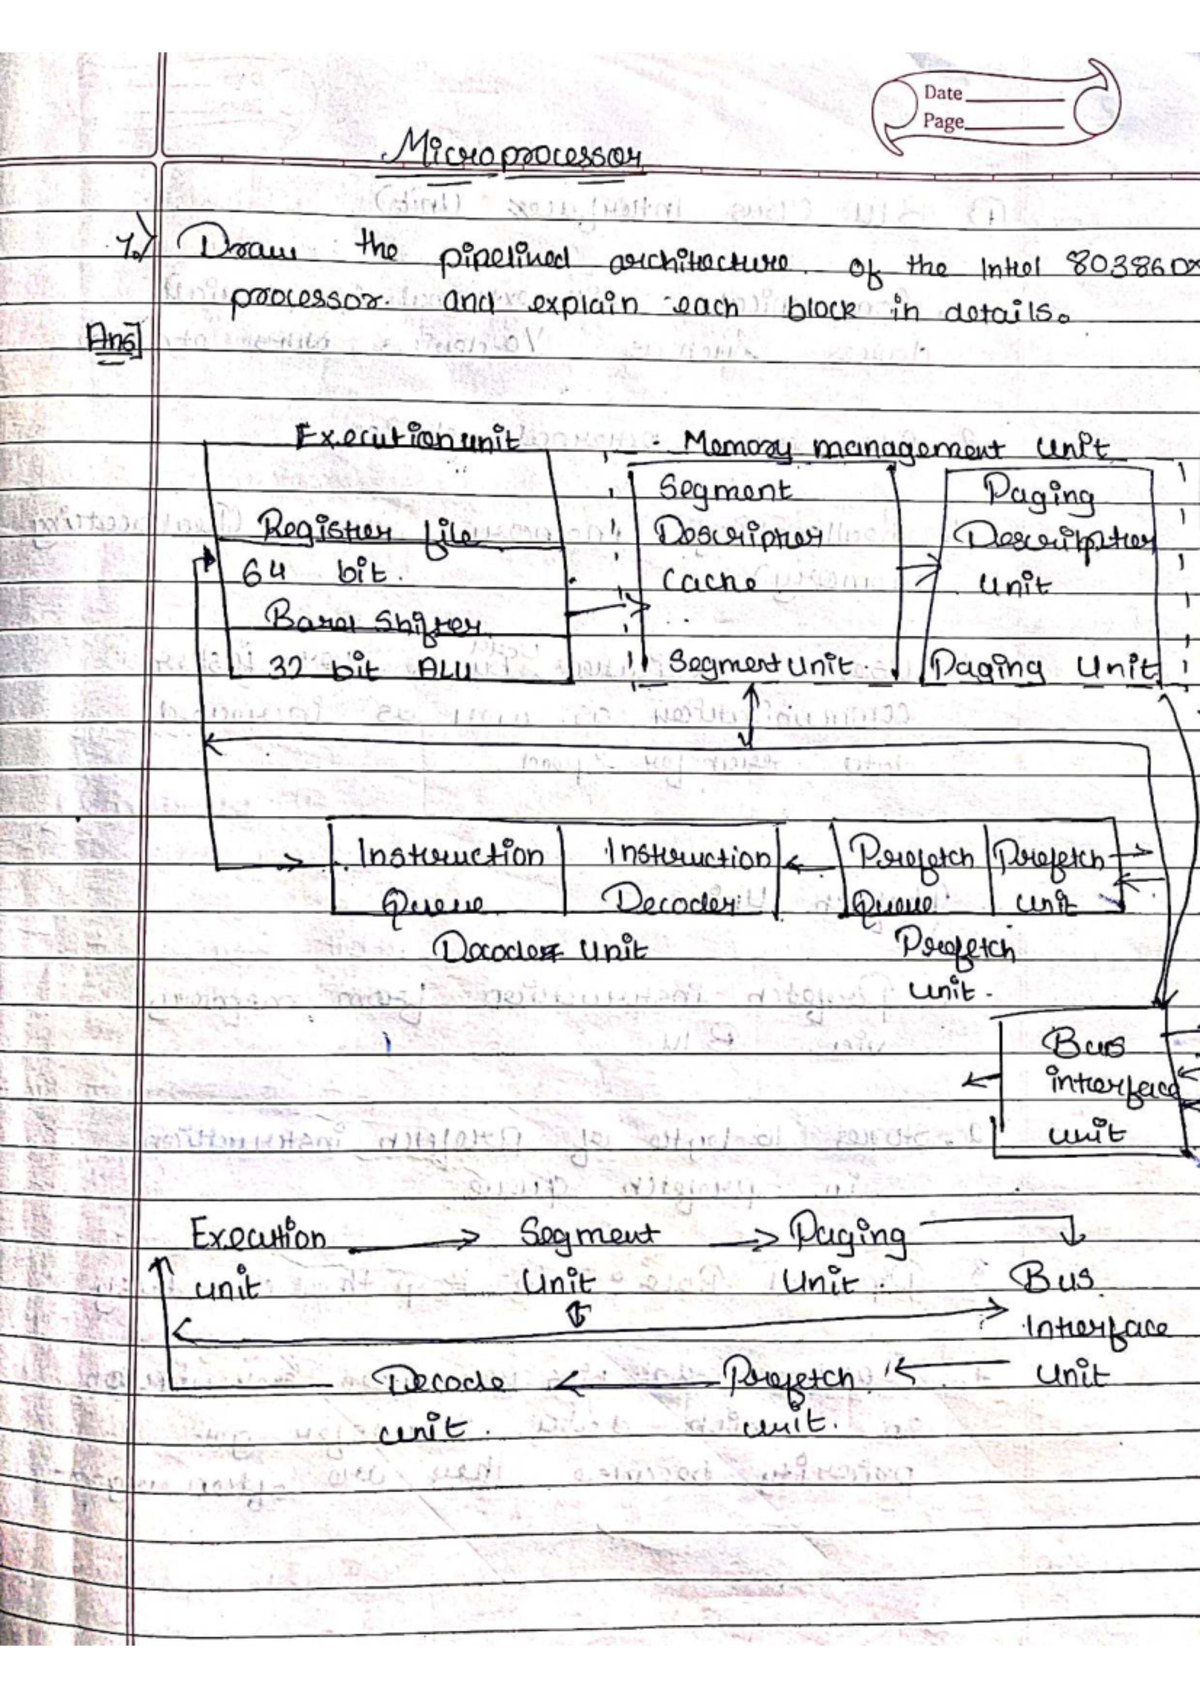 Date
Page
Microprocessor
1.) Draw the pipelined architecture. of the Intel 80386DX
processor. and explain each block in details.
Ans]
Execution unit
Memory management Unit
Register file
64 bit.
Barel Shifter
32 bit ALU
Segment
Descripter
Cache
Segment Unit.
Paging
Descripter
Unit
Paging Unit
Instruction
Queue
Instruction
Decoder
Decoder Unit
Prefetch
Queue
Prefetch
unit
Prefetch
unit.
Bus
interface
unit
Execution
unit
Segment
Unit
Paging
Unit.
Bus
Interface
Unit
Decode
unit.
Prefetch
unit.